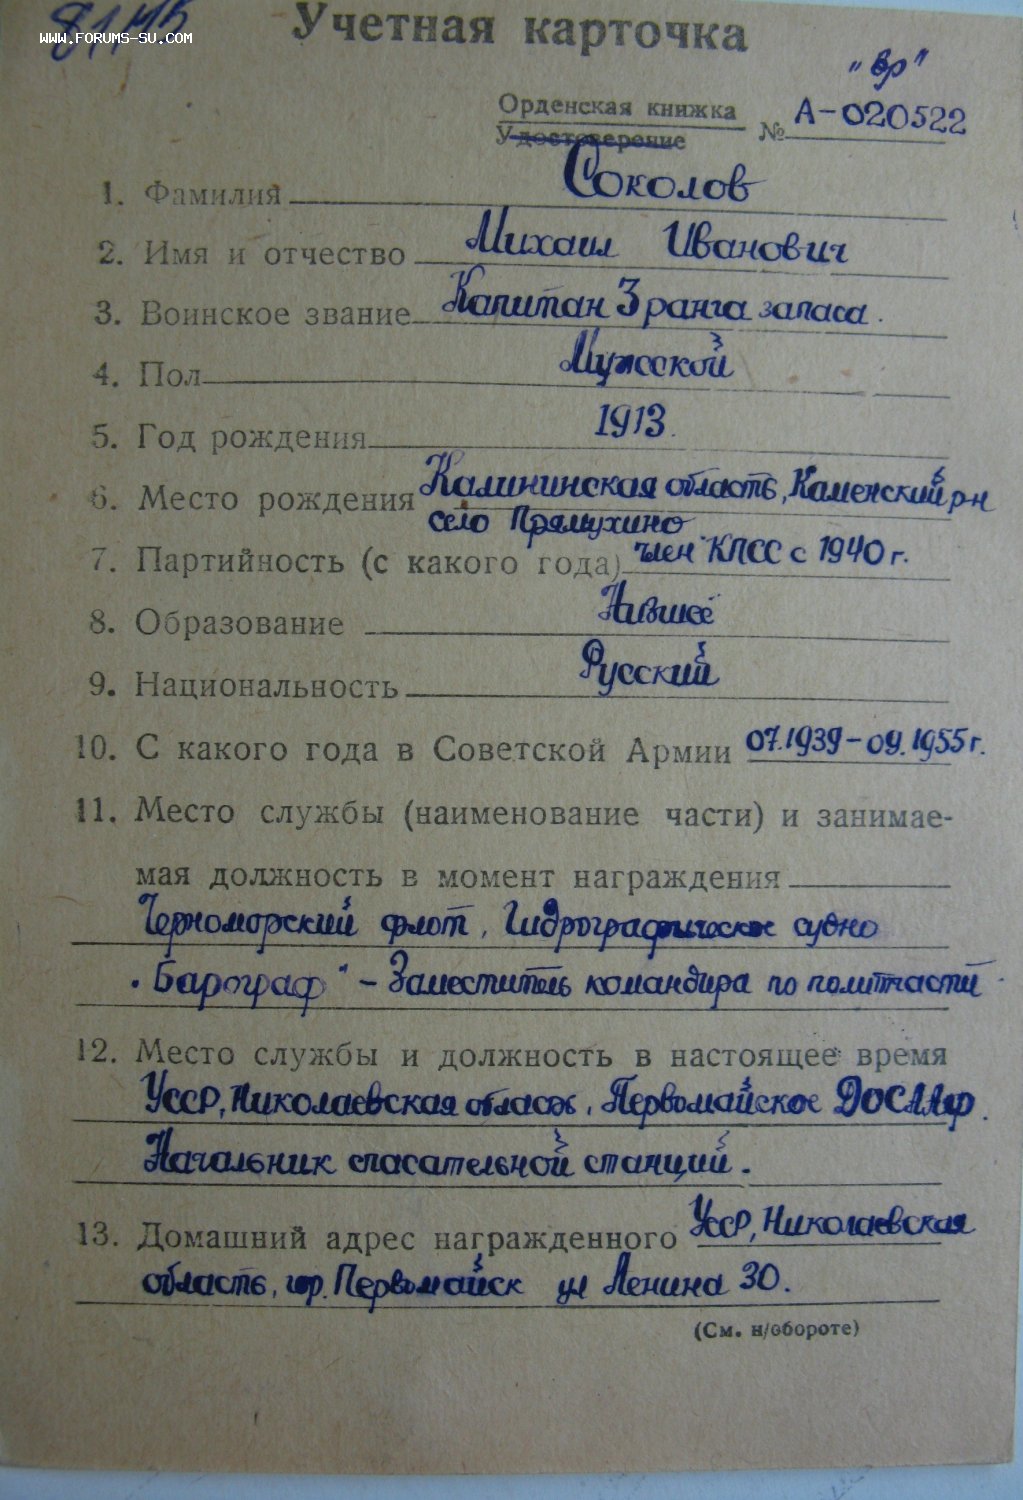 WWW.FORUMS-SU.COM
Учетная карточка
"вр"
Орденская книжка
Удостоверение
№ А-020522
1. Фамилия Соколов
2. Имя и отчество Михаил Иванович
3. Воинское звание Капитан 3 ранга запаса.
4. Пол Мужской
5. Год рождения 1913.
6. Место рождения Калининская область, Каменский р-н
село Прямухино
7. Партийность (с какого года) член КПСС с 1940 г.
8. Образование Низшее
9. Национальность Русский
10. С какого года в Советской Армии 07.1939 – 09.1955 г.
11. Место службы (наименование части) и занимае-
мая должность в момент награждения
Черноморский флот, Гидрографическое судно
"Барограф" – Заместитель командира по политчасти
12. Место службы и должность в настоящее время
УССР, Николаевская область, Первомайское ДОСААФ.
Начальник спасательной станции.
13. Домашний адрес награжденного УССР, Николаевская
область, гор. Первомайск ул Ленина 30.
(См. н/обороте)